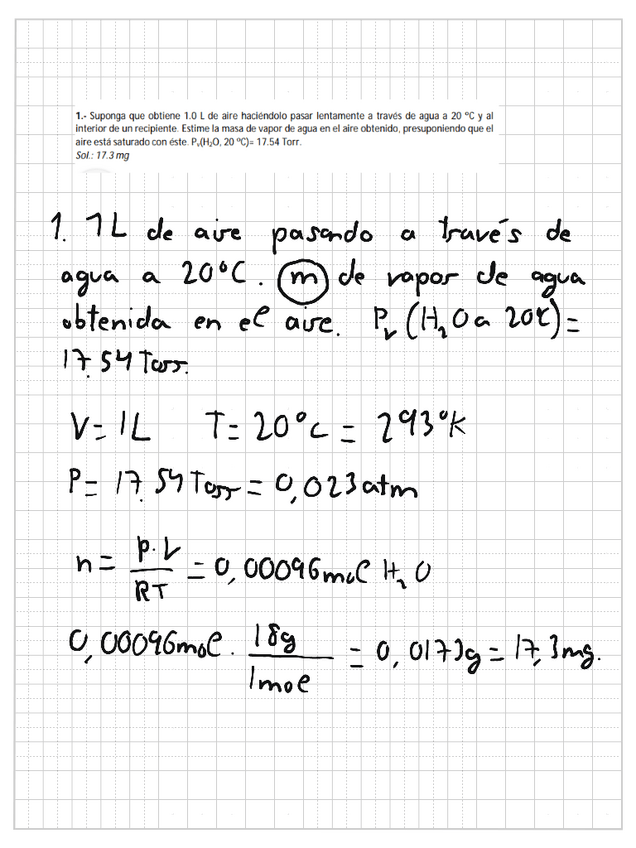 1.- Suponga que obtiene 1.0 L de aire haciéndolo pasar lentamente a través de agua a 20 ºC y al
interior de un recipiente. Estime la masa de vapor de agua en el aire obtenido, presuponiendo que el
aire está saturado con éste. Pᵥ(H₂O, 20 ºC)= 17.54 Torr.
Sol.: 17.3 mg
1. 1L de aire pasando a través de
agua a 20°C. m de vapor de agua
obtenida en el aire. Pᵥ (H₂O a 20°C)=
17.54 Torr.
V=1L T=20°C = 293°K
P= 17.54 Torr = 0,023 atm
n= P.V/RT = 0,00096 mol H₂O
0,00096 mol . 18g/1mol = 0,0173g = 17,3 mg.